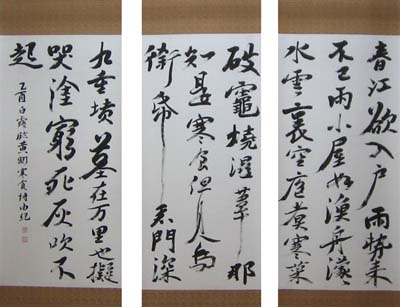 春江欲入戶雨勢来
不已雨小屋如漁舟濛々
水雲裏空庖煮寒菜
破竈燒濕葦那
知是寒食但見烏
銜帋君門深
九重墳墓在万里也擬
哭塗窮死灰吹不
起
乙酉白露臨黃州寒食詩由紀